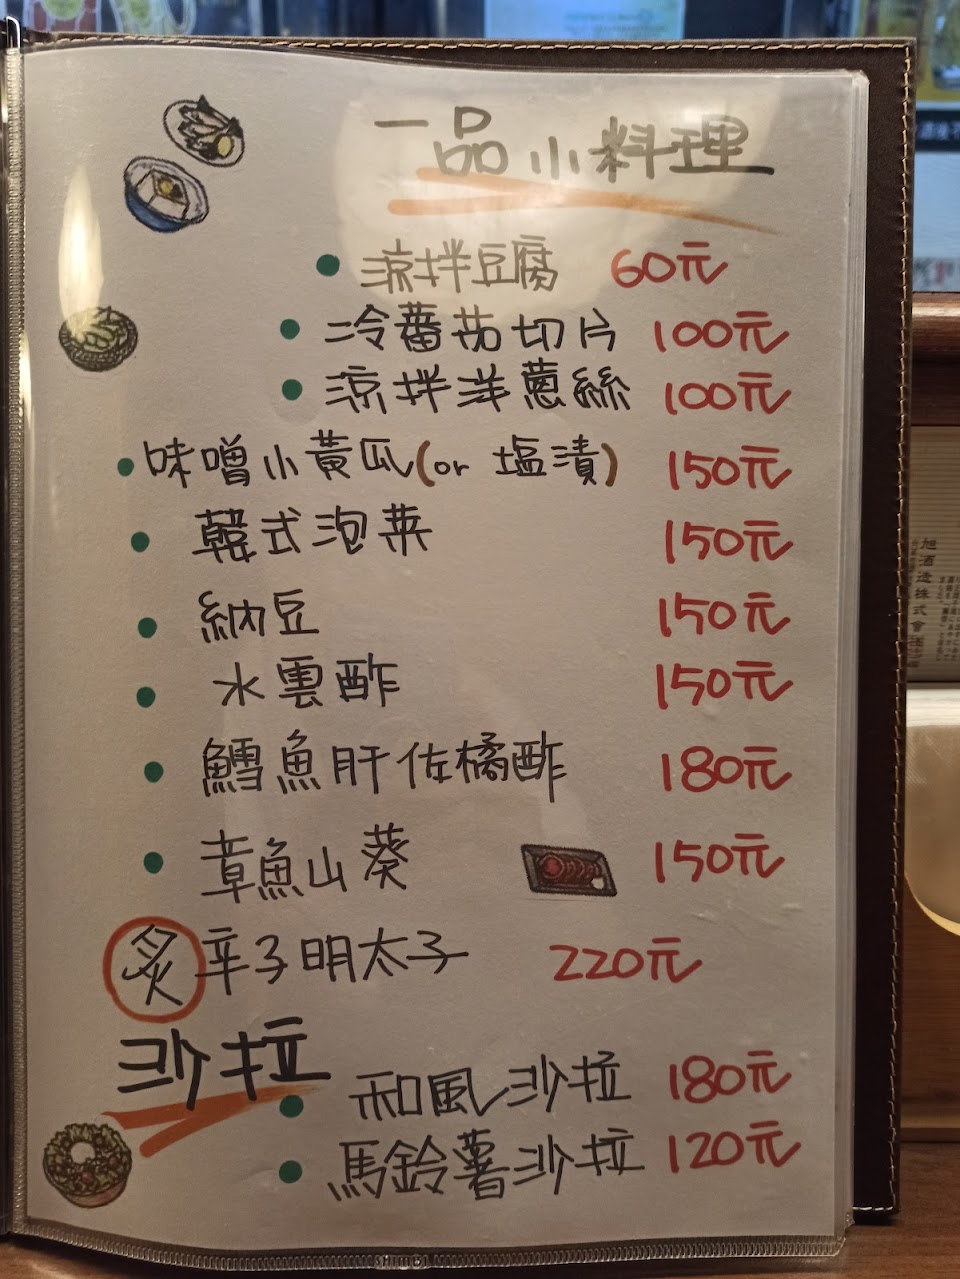 一品小料理
涼拌豆腐 60元
冷蕃茄切片 100元
涼拌洋蔥絲 100元
味噌小黃瓜(or 塩漬) 150元
韓式泡菜 150元
納豆 150元
水雲酢 150元
鱈魚肝佐橘酢 180元
章魚山葵 150元
炙 辛子明太子 220元
沙拉
和風沙拉 180元
馬鈴薯沙拉 120元
旭酒造株式會